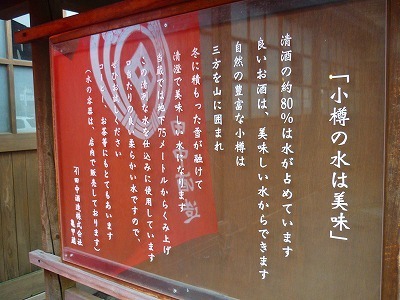 「小樽の水は美味」
清酒の約80%は水が占めています
良いお酒は、美味しい水からできます
自然の豊富な小樽は
三方を山に囲まれ
冬に積もった雪が融けて
清澄で美味しい水になります
当蔵では地下75メートルからくみ上げ
この清冽な水を仕込みに使用しています
口当たりの良い柔らかい水ですので、
ぜひお試しください
コーヒー、お茶等にもとてもあいます
(水の容器は、店内で販売しております)
田中酒造株式会社
亀甲蔵